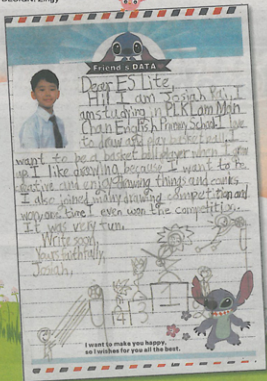 Friend's DATA
Dear ES Lite,
Hi! I am Josiah Yai, I
am studying in PLK Lam Man
Chan English Primary School. I love
to draw and play basketball. I
want to be a basketball player when I grow
up. I like drawing because I want to be
creative and enjoy drawing things and comics.
I also joined many drawing competition and
won, one time I even won the competition.
It was very fun.
Write soon,
Yours faithfully,
Josiah,
I want to make you happy,
so I wishes for you all the best.